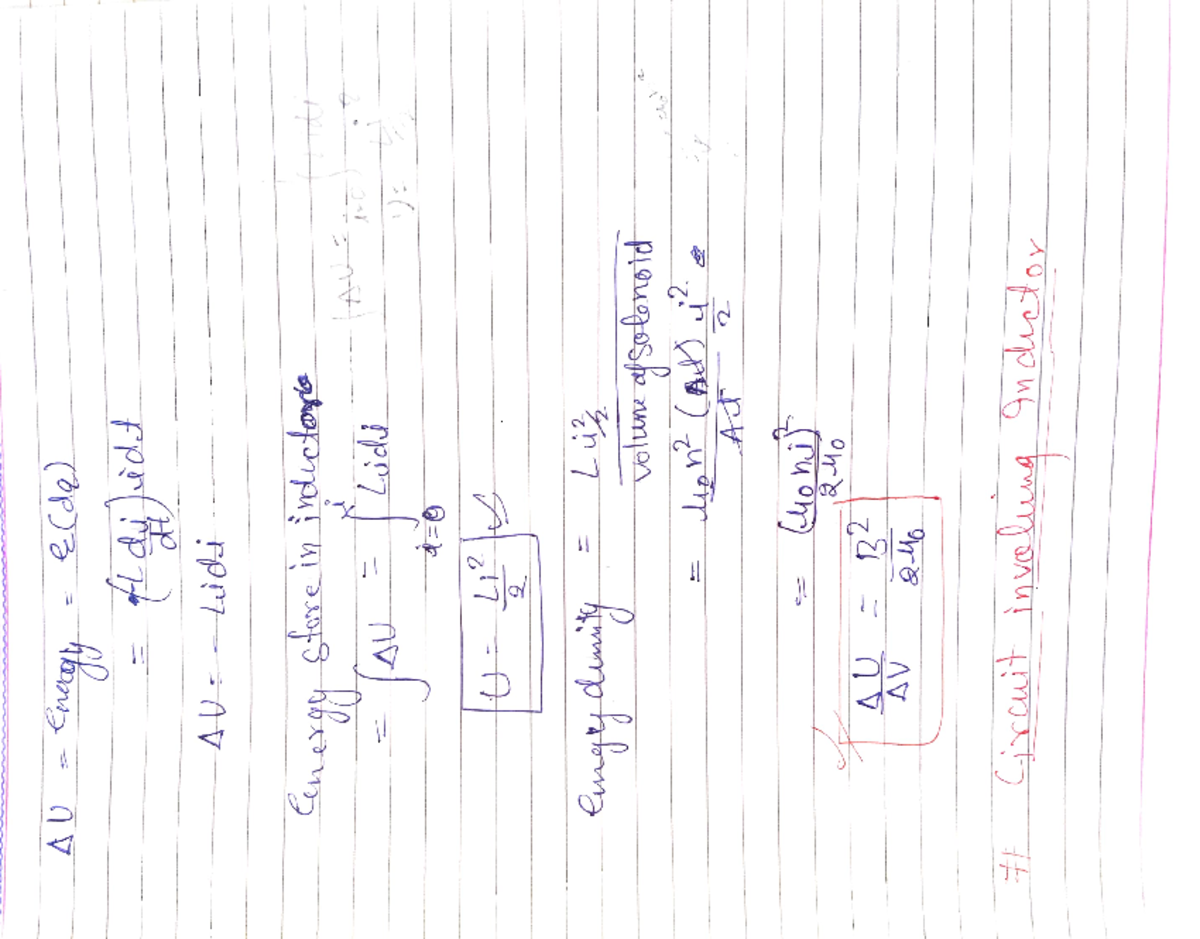 ΔU = Energy = ε(dq)
= (L di/dt) i dt
ΔU = - Lidi
Energy store in inductor
= ∫ΔU = ∫ i=0 i Lidi
U = Li²/2
energy density = Li²/2 / volume of solenoid
= μ₀n² (Al) i² / Al 2
= (μ₀ni)² / 2μ₀
ΔU/ΔV = B²/2μ₀
# Circuit involving Inductor